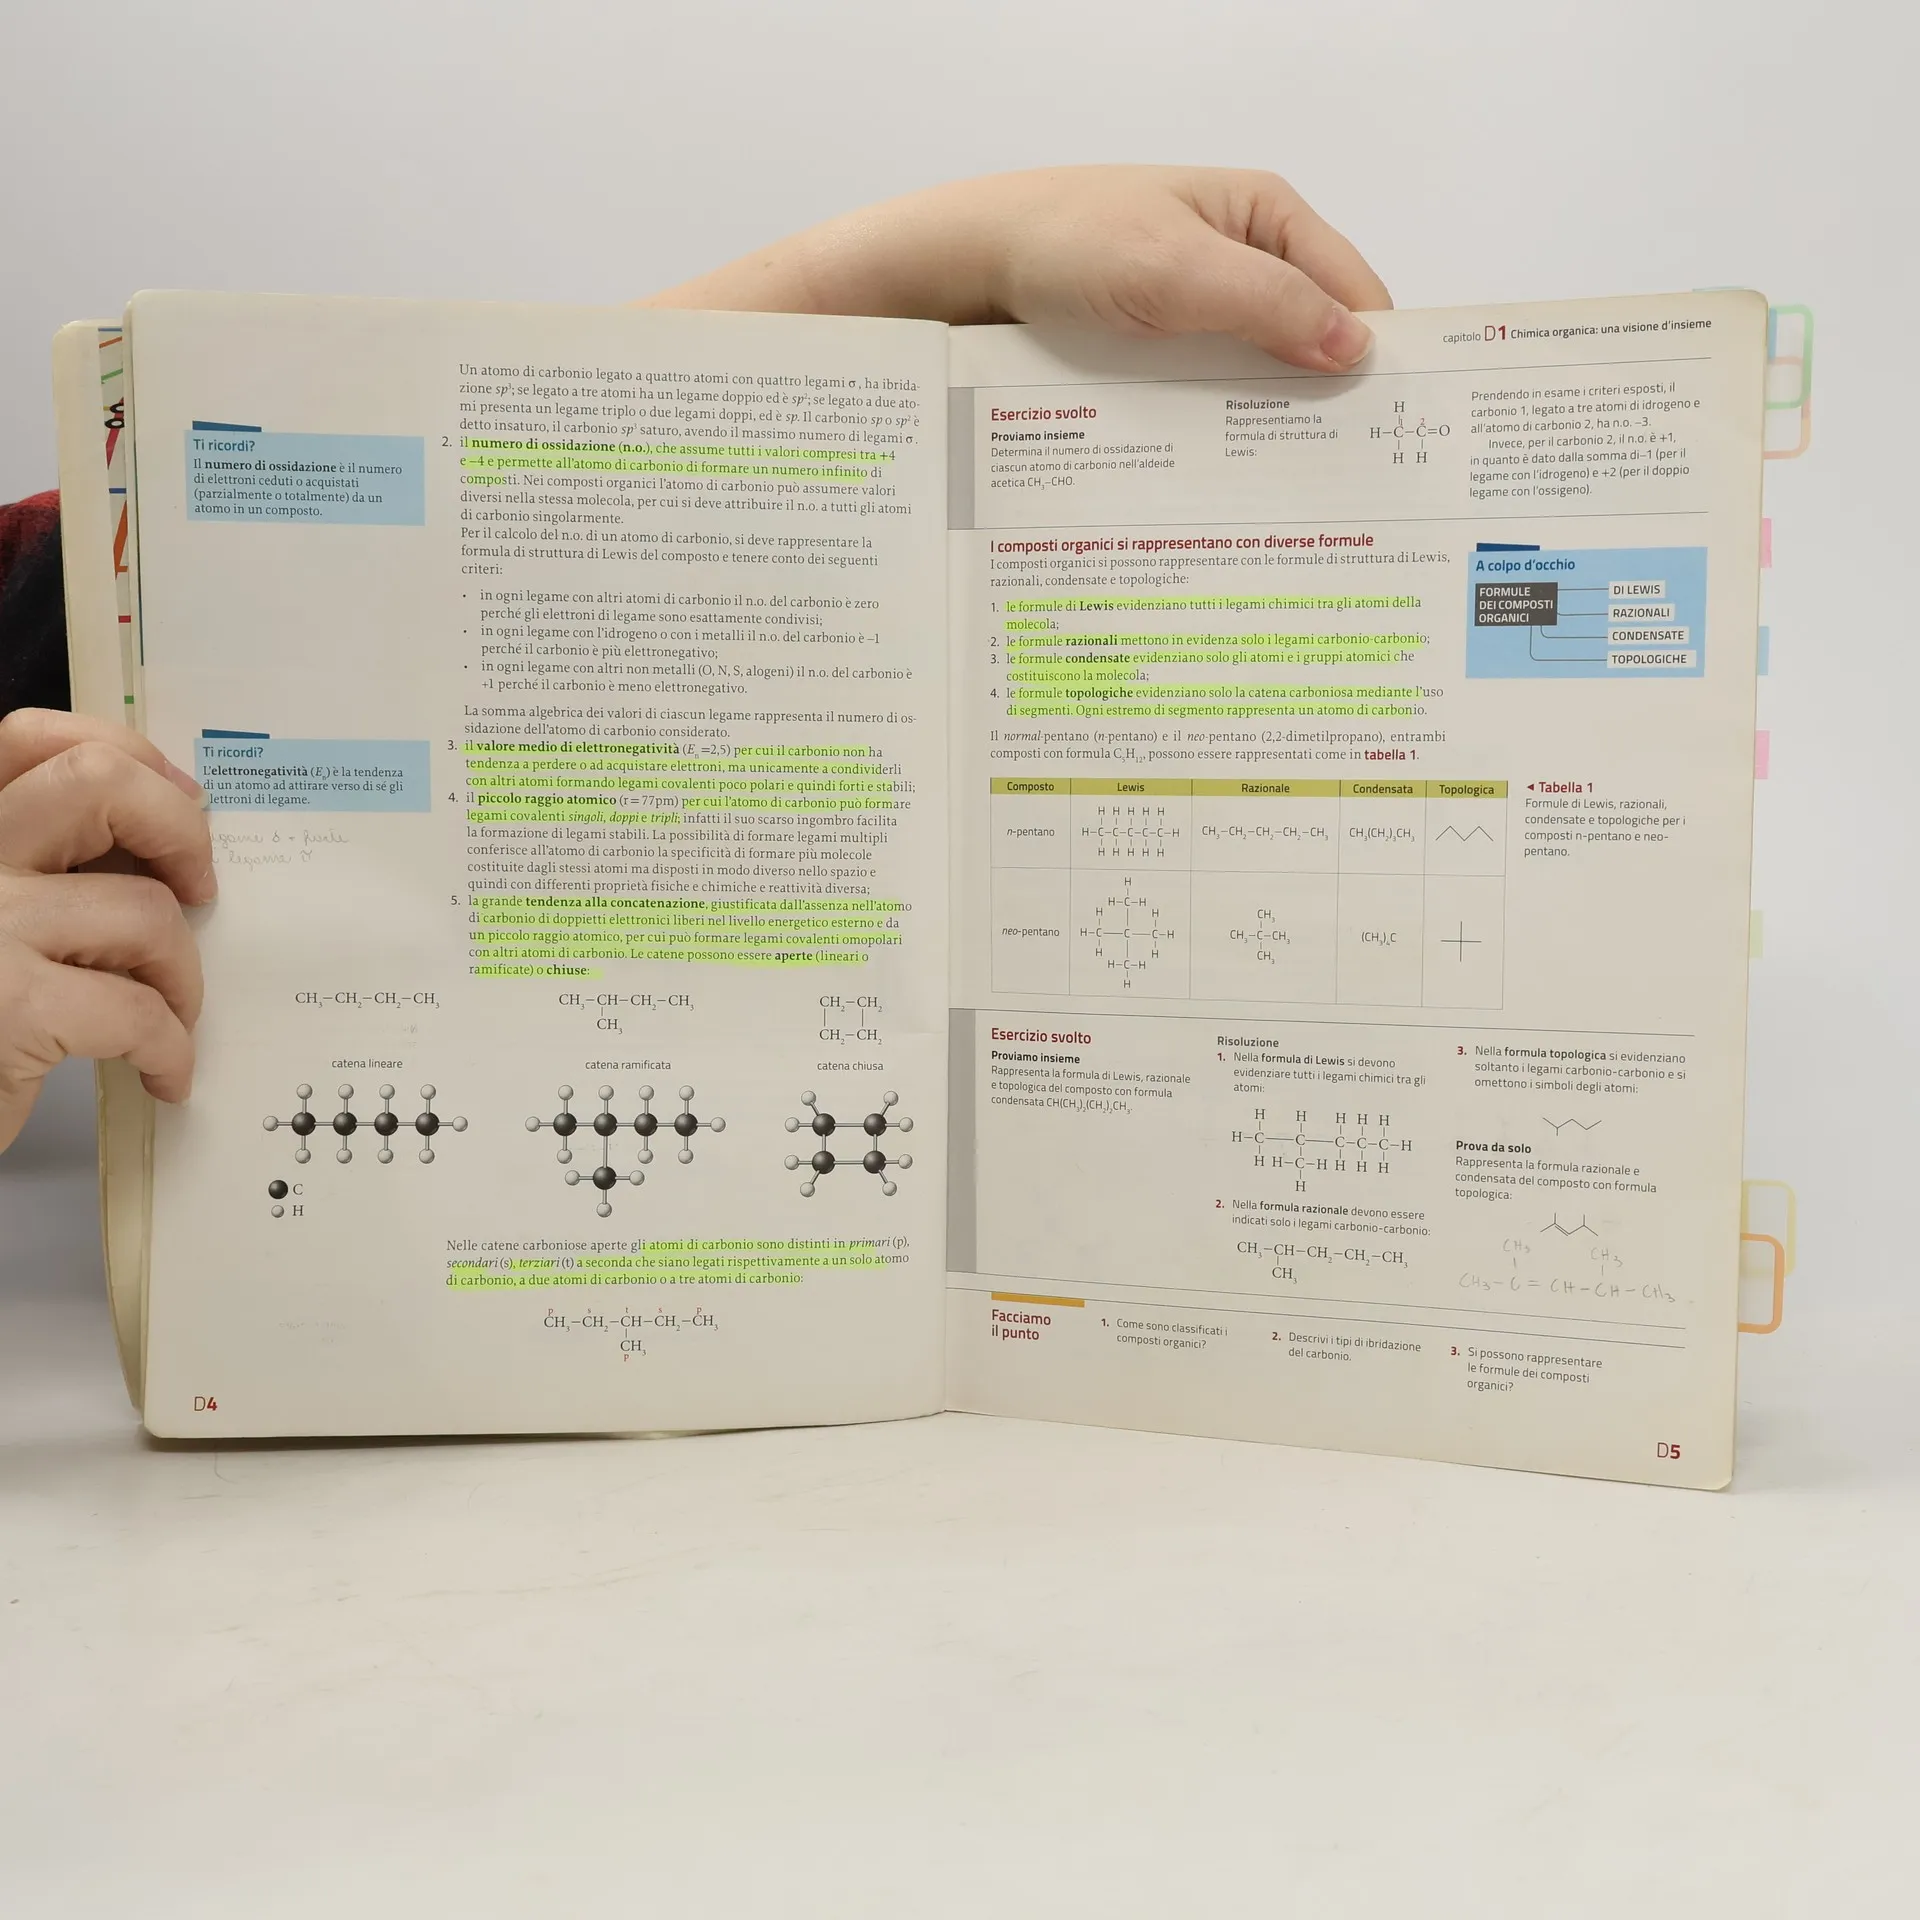 Un atomo di carbonio legato a quattro atomi con quattro legami σ, ha ibrida-
zione sp³; se legato a tre atomi ha un legame doppio ed è sp²; se legato a due ato-
mi presenta un legame triplo o due legami doppi, ed è sp. Il carbonio sp o sp² è
detto insaturo, il carbonio sp³ saturo, avendo il massimo numero di legami σ.
2. il numero di ossidazione (n.o.), che assume tutti i valori compresi tra +4
e –4 e permette all'atomo di carbonio di formare un numero infinito di
composti. Nei composti organici l'atomo di carbonio può assumere valori
diversi nella stessa molecola, per cui si deve attribuire il n.o. a tutti gli atomi
di carbonio singolarmente.
Per il calcolo del n.o. di un atomo di carbonio, si deve rappresentare la
formula di struttura di Lewis del composto e tenere conto dei seguenti
criteri:
• in ogni legame con altri atomi di carbonio il n.o. del carbonio è zero
perché gli elettroni di legame sono esattamente condivisi;
• in ogni legame con l'idrogeno o con i metalli il n.o. del carbonio è –1
perché il carbonio è più elettronegativo;
• in ogni legame con altri non metalli (O, N, S, alogeni) il n.o. del carbonio è
+1 perché il carbonio è meno elettronegativo.
La somma algebrica dei valori di ciascun legame rappresenta il numero di os-
sidazione dell'atomo di carbonio considerato.
3. il valore medio di elettronegatività (Eₙ =2,5) per cui il carbonio non ha
tendenza a perdere o ad acquistare elettroni, ma unicamente a condividerli
con altri atomi formando legami covalenti poco polari e quindi forti e stabili;
4. il piccolo raggio atomico (r = 77pm) per cui l'atomo di carbonio può formare
legami covalenti singoli, doppi e tripli; infatti il suo scarso ingombro facilita
la formazione di legami stabili. La possibilità di formare legami multipli
conferisce all'atomo di carbonio la specificità di formare più molecole
costituite dagli stessi atomi ma disposti in modo diverso nello spazio e
quindi con differenti proprietà fisiche e chimiche e reattività diversa;
5. la grande tendenza alla concatenazione, giustificata dall'assenza nell'atomo
di carbonio di doppietti elettronici liberi nel livello energetico esterno e da
un piccolo raggio atomico, per cui può formare legami covalenti omopolari
con altri atomi di carbonio. Le catene possono essere aperte (lineari o
ramificate) o chiuse:
Ti ricordi?
Il numero di ossidazione è il numero
di elettroni ceduti o acquistati
(parzialmente o totalmente) da un
atomo in un composto.
Ti ricordi?
L'elettronegatività (Eₙ) è la tendenza
di un atomo ad attirare verso di sé gli
lettroni di legame.
legame
CH₃–CH₂–CH₂–CH₃
catena lineare
CH₃–CH–CH₂–CH₃
CH₃
catena ramificata
CH₂–CH₂
CH₂–CH₂
catena chiusa
C
H
Nelle catene carboniose aperte gli atomi di carbonio sono distinti in primari (p),
secondari (s), terziari (t) a seconda che siano legati rispettivamente a un solo atomo
di carbonio, a due atomi di carbonio o a tre atomi di carbonio:
p s t s p
CH₃–CH₂–CH–CH₂–CH₃
CH₃
p
D4
capitolo D1 Chimica organica: una visione d'insieme
Esercizio svolto
Proviamo insieme
Determina il numero di ossidazione di
ciascun atomo di carbonio nell'aldeide
acetica CH₃–CHO.
Risoluzione
Rappresentiamo la
formula di struttura di
Lewis:
H
1 2
H–C–C=O
H H
Prendendo in esame i criteri esposti, il
carbonio 1, legato a tre atomi di idrogeno e
all'atomo di carbonio 2, ha n.o. -3.
Invece, per il carbonio 2, il n.o. è +1,
in quanto è dato dalla somma di–1 (per il
legame con l'idrogeno) e +2 (per il doppio
legame con l'ossigeno).
I composti organici si rappresentano con diverse formule
I composti organici si possono rappresentare con le formule di struttura di Lewis,
razionali, condensate e topologiche:
1. le formule di Lewis evidenziano tutti i legami chimici tra gli atomi della
molecola;
2. le formule razionali mettono in evidenza solo i legami carbonio-carbonio;
3. le formule condensate evidenziano solo gli atomi e i gruppi atomici che
costituiscono la molecola;
4. le formule topologiche evidenziano solo la catena carboniosa mediante l'uso
di segmenti. Ogni estremo di segmento rappresenta un atomo di carbonio.
Il normal-pentano (n-pentano) e il neo-pentano (2,2-dimetilpropano), entrambi
composti con formula C₅H₁₂, possono essere rappresentati come in tabella 1.
A colpo d'occhio
FORMULE
DEI COMPOSTI
ORGANICI
DI LEWIS
RAZIONALI
CONDENSATE
TOPOLOGICHE
Composto Lewis Razionale Condensata Topologica
H H H H H
n-pentano H–C–C–C–C–C–H CH₃–CH₂–CH₂–CH₂–CH₃ CH₃(CH₂)₃CH₃
H H H H H
H
H–C–H
H H
CH₃
neo-pentano H–C–C–C–H CH₃–C–CH₃ (CH₃)₄C
CH₃
H H
H–C–H
H
◂ Tabella 1
Formule di Lewis, razionali,
condensate e topologiche per i
composti n-pentano e neo-
pentano.
Esercizio svolto
Proviamo insieme
Rappresenta la formula di Lewis, razionale
e topologica del composto con formula
condensata CH(CH₃)₂(CH₂)₂CH₃.
Risoluzione
1. Nella formula di Lewis si devono
evidenziare tutti i legami chimici tra gli
atomi:
H H H H H
H–C–C–C–C–C–H
H H–C–H H H H
H
2. Nella formula razionale devono essere
indicati solo i legami carbonio-carbonio:
CH₃–CH–CH₂–CH₂–CH₃
CH₃
3. Nella formula topologica si evidenziano
soltanto i legami carbonio-carbonio e si
omettono i simboli degli atomi:
Prova da solo
Rappresenta la formula razionale e
condensata del composto con formula
topologica:
CH₃ CH₃
CH₃–C=CH–CH–CH₃
Facciamo
il punto
1. Come sono classificati i
composti organici?
2. Descrivi i tipi di ibridazione
del carbonio.
3. Si possono rappresentare
le formule dei composti
organici?
D5